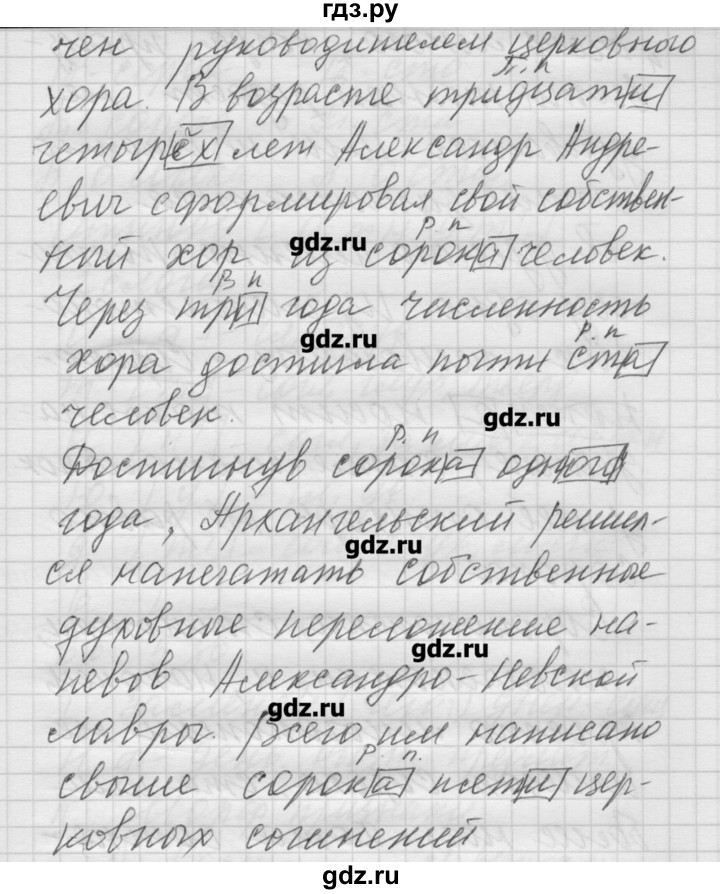 гдз.ру
чен руководителем церковного
П. п
хора. В возрасте тридцати
четырёх лет Александр Андре-
евич сформировал свой собствен-
Р. п
ный хор из сорока человек.
gdz.ru
В п
Через три года численность
gdz.ru
Р. п
хора достигла почти ста
человек.
gdz.ru
Р. п
Достигнув сорока одного
года, Архангельский решил-
gdz.ru
ся напечатать собственные
духовные переложение на-
gdz.ru
певов Александро-Невской
gdz.ru
лавры. Всего им написано
Р п.
свыше сорока пяти цер-
ковных сочинений
gdz.ru